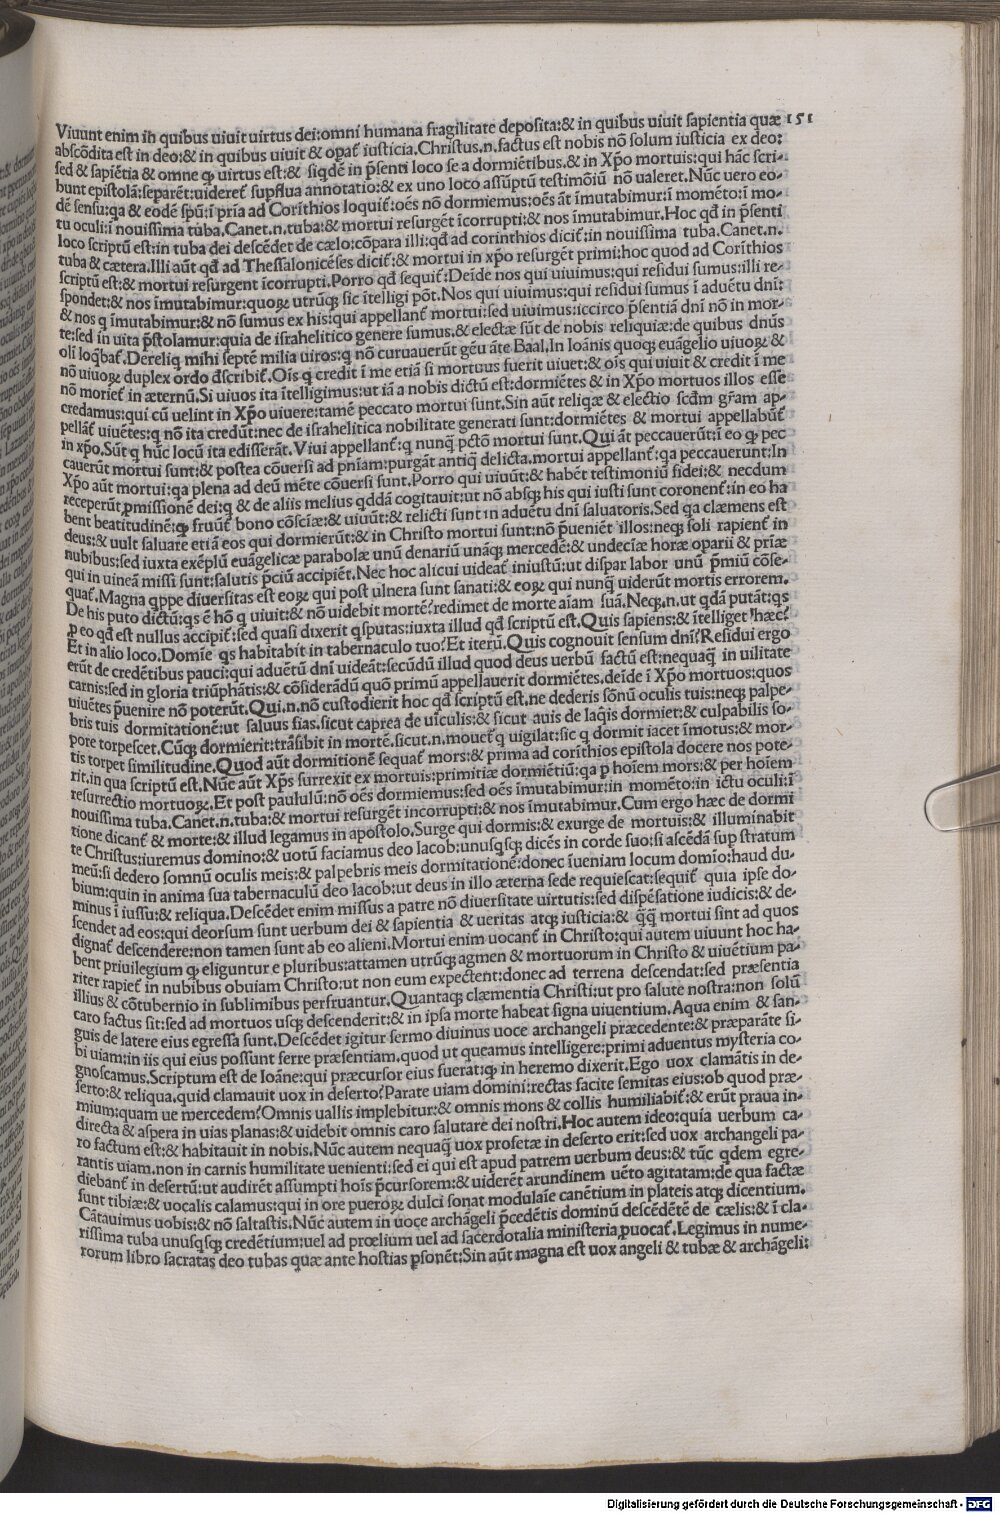 Viuunt enim in quibus uiuit uirtus dei:omni humana fragilitate deposita:& in quibus uiuit sapientia quæ 151
abscõdita est in deo:& in quibus uiuit & opaĩ iusticia.Christus.n.factus est nobis nõ solum iusticia ex deo:
sed & sapiẽtia & omne ꝙ uirtus est:& siqdẽ in p̃senti loco se a dormiẽtibus.& in Xp̃o mortuis:qui hãc scri-
bunt epistolã:separẽt:uidereť supflua annotatio:& ex uno loco assũptũ testimõiũ nõ ualeret.Nũc uero eo-
dẽ sensu:qa & eodẽ sp̃u:ĩ prĩa ad Corĩthios loquiť:oẽs nõ dormiemus:oẽs ãt ĩmutabimur:ĩ momẽto:ĩ mo-
tu oculi:ĩ nouissima tuba.Canet.n.tuba:& mortui resurgẽt ĩcorrupti:& nos ĩmutabimur.Hoc qđ in p̃senti
loco scriptũ est:in tuba dei descẽdet de cælo:cõpara illi:qđ ad corinthios diciť:in nouissima tuba.Canet.n.
tuba & cætera.Illi aũt qđ ad Thessalonicẽses diciť:& mortui in xp̃o resurgẽt primi:hoc quod ad Corĩthios
scriptũ est:& mortui resurgent ĩcorrupti.Porro qđ sequiť:Deĩde nos qui uiuimus:qui residui sumus:illi re-
spondet:& nos ĩmutabimur:quoꝝ utrũqꝫ sic ĩtelligi põt.Nos qui uiuimus:qui residui sumus ĩ aduẽtu dñi:
& nos q ĩmutabimur:& nõ sumus ex his:qui appellanť mortui:sed uiuimus:iccirco p̃sentiã dñi nõ in mor-
te:sed in uita p̃stolamur:quia de israhelitico genere sumus.& electæ sũt de nobis reliquiæ:de quibus dñus
oli loq̃bať.Dereliq mihi septẽ milia uiros:q nõ curuauerũt gẽu ãte Baal,In Ioãnis quoqꝫ euãgelio uiuoꝝ &
nõ uiuoꝝ duplex ordo đscribiť.Oĩs q credit ĩ me etiã si mortuus fuerit uiuet:& oĩs qui uiuit & credit ĩ me
nõ morieť in æternũ.Si uiuos ita ĩtelligimus:ut iã a nobis dictũ est:dormiẽtes & in Xp̃o mortuos illos esse
credamus:qui cũ uelint in Xp̃o uiuere:tamẽ peccato mortui sunt.Sin aũt reliqæ & electio scđm gr̃am ap-
pellãť uiuẽtes:q nõ ita credũt:nec de israhelitica nobilitate generati sunt:dormiẽtes & mortui appellabũť
in xp̃o.Sũt q hũc locũ ita edisserãt.Viui appellanť:q nunq̃ pctõ mortui sunt.Qui ãt peccauerũt:ĩ eo ꝙ pec
cauerũt mortui sunt:& postea cõuersi ad pñiam:purgãt antiq̃ delicta.mortui appellanť:qa peccauerunt:In
Xp̃o aũt mortui:qa plena ad deũ mẽte cõuersi sunt.Porro qui uiuũt:& habẽt testimoniũ fidei:& necdum
receperũt ꝓmissionẽ dei:q & de aliis melius qddã cogitauit:ut nõ absqꝫ his qui iusti sunt coronenť:in eo ha
bent beatitudinẽ:ꝙ fruũť bono cõsciæ:& uiuũt:& relicti sunt in aduẽtu dñi saluatoris.Sed qa clæmens est
deus:& uult saluare etiã eos qui dormierũt:& in Christo mortui sunt:nõ p̃ueniẽt illos:neqꝫ soli rapienť in
nubibus:sed iuxta exẽplũ euãgelicæ parabolæ unũ denariũ unãqꝫ mercedẽ:& undecĩæ horæ oparii & prĩæ
qui in uineã missi sunt:salutis p̃ciũ accipiẽt.Nec hoc alicui uideať iniustũ:ut dispar labor unũ p̃miũ cõse-
quať.Magna qppe diuersitas est eoꝝ qui post uulnera sunt sanati:& eoꝝ qui nunq̃ uiderũt mortis errorem.
De his puto dictũ:qs ẽ hõ q uiuit:& nõ uidebit mortẽ?redimet de morte aĩam suã.Neqꝫ.n.ut qdã putãt:qs
ꝑ eo qđ est nullus accipiť:sed quasi dixerit qsputas:iuxta illud qđ scriptũ est.Quis sapiens:& ĩtelliget hæc?
Et in alio loco.Domĩe qs habitabit in tabernaculo tuo?Et iterũ.Quis cognouit sensum dñi?Residui ergo
erũt de credẽtibus pauci:qui aduẽtũ dñi uideãt:secũdũ illud quod deus uerbũ factũ est:nequaq̃ in uilitate
carnis:sed in gloria triũphãtis:& cõsiderãdũ quõ primũ appellauerit dormiẽtes.deĩde ĩ Xp̃o mortuos:quos
uiuẽtes p̃uenire nõ poterũt.Qui.n.nõ custodierit hoc qđ scriptũ est.ne dederis sõnũ oculis tuis:neqꝫ palpe-
bris tuis dormitationẽ:ut saluus fias.sicut caprea de uĩculis:& sicut auis de laq̃is dormiet:& culpabilis so-
pore torpescet.Cũqꝫ dormierit:trãsibit in mortẽ.sicut.n.moueť q uigilat:sic q dormit iacet ĩmotus:& mor-
tis torpet similitudine.Quod aũt dormitionẽ sequať mors:& prima ad corĩthios epistola docere nos pote-
rit.in qua scriptũ est.Nũc aũt Xp̃s surrexit ex mortuis:primitiæ dormiẽtiũ:qa p hoĩem mors:& per hoĩem
resurrectio mortuoꝝ.Et post paululũ:nõ oẽs dormiemus:sed oẽs ĩmutabimur:in momẽto:in ictu oculi:ĩ
nouissima tuba.Canet.n.tuba:& mortui resurgẽt incorrupti:& nos ĩmutabimur.Cum ergo hæc de dormi
tione dicanť & morte:& illud legamus in apostolo.Surge qui dormis:& exurge de mortuis:& illuminabit
te Christus:iuremus domino:& uotũ faciamus deo Iacob:unusqsqꝫ dicẽs in corde suo:si ascẽdã sup stratum
meũ:si dedero somnũ oculis meis:& palpebris meis dormitationẽ:donec ĩueniam locum domĩo:haud du-
bium:quin in anima sua tabernaculũ deo Iacob:ut deus in illo æterna sede requiescat:sequiť quia ipse do-
minus ĩ iussu:& reliqua.Descẽdet enim missus a patre nõ diuersitate uirtutis:sed dispẽsatione iudicis:& de-
scendet ad eos:qui deorsum sunt uerbum dei & sapientia & ueritas atqꝫ iusticia:& q̃q̃ mortui sint ad quos
dignať descendere:non tamen sunt ab eo alieni.Mortui enim uocanť in Christo:qui autem uiuunt hoc ha-
bent priuilegium ꝙ eliguntur e pluribus:attamen utrũqꝫ agmen & mortuorum in Christo & uiuẽtium pa-
riter rapieť in nubibus obuiam Christo:ut non eum expectent:donec ad terrena descendat:sed præsentia
illius & cõtubernio in sublimibus perfruantur.Quantaqꝫ clæmentia Christi:ut pro salute nostra:non solũ
caro factus sit:sed ad mortuos usqꝫ descenderit:& in ipsa morte habeat signa uiuentium.Aqua enim & san-
guis de latere eius egressa sunt.Descẽdet igitur sermo diuinus uoce archangeli præcedente:& præparãte si-
bi uiam:in iis qui eius possunt ferre præsentiam.quod ut queamus intelligere:primi aduentus mysteria co-
gnoscamus.Scriptum est de Ioãne:qui præcursor eius fuerat:ꝙ in heremo dixerit.Ego uox clamãtis in de-
serto:& reliqua.quid clamauit uox in deserto?Parate uiam domini:rectas facite semitas eius:ob quod præ-
mium:quam ue mercedem?Omnis uallis implebitur:& omnis mons & collis humiliabiť:& erũt praua in-
directa & aspera in uias planas:& uidebit omnis caro salutare dei nostri.Hoc autem ideo:quia uerbum ca-
ro factum est:& habitauit in nobis.Nũc autem nequaq̃ uox profetæ in deserto erit:sed uox archangeli pa-
rantis uiam.non in carnis humilitate uenienti:sed ei qui est apud patrem uerbum deus:& tũc qdem egre-
diebanť in desertũ:ut audirẽt assumpti hoĩs p̃cursorem:& uiderẽt arundinem uẽto agitatam:de qua factæ
sunt tibiæ:& uocalis calamus:qui in ore pueroꝝ dulci sonat modulaĩe canẽtium in plateis atqꝫ dicentium.
Cãtauimus uobis:& nõ saltastis.Nũc autem in uoce archãgeli p̃cedẽtis dominũ descẽdẽtẽ de cælis:& ĩ cla-
rissima tuba unusqsqꝫ credẽtium:uel ad prœlium uel ad sacerdotalia ministeria ꝓuocať.Legimus in nume-
rorum libro sacratas deo tubas quæ ante hostias ꝑsonẽt:Sin aũt magna est uox angeli & tubæ & archãgeli:
Digitalisierung gefördert durch die Deutsche Forschungsgemeinschaft - DFG